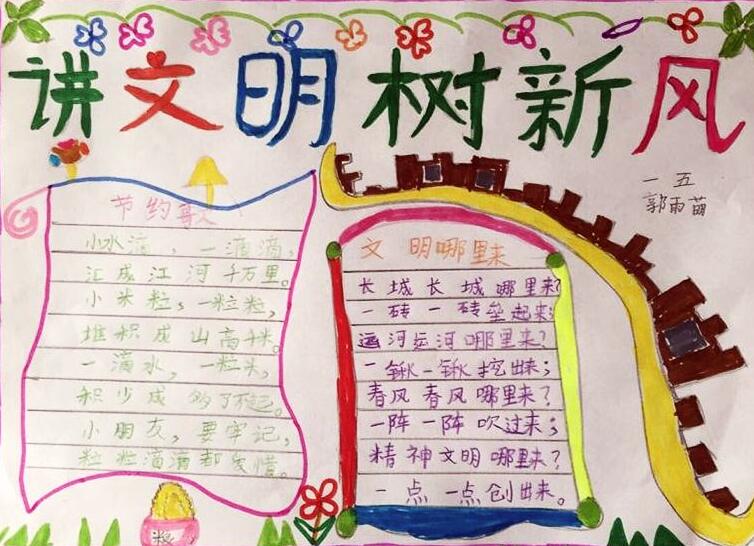 讲文明树新风
一五
郭雨苗
节约歌
小水滴，一滴滴，
汇成江河千万里。
小米粒，一粒粒，
堆积成山高千米。
一滴水，一粒米，
积少成够了不起。
小朋友，要牢记，
粒粒滴滴都爱惜。
文明哪里来
长城长城哪里来？
一砖一砖垒起来；
运河运河哪里来？
一锹一锹挖出来；
春风春风哪里来？
一阵一阵吹过来；
精神文明哪里来？
一点一点创出来。